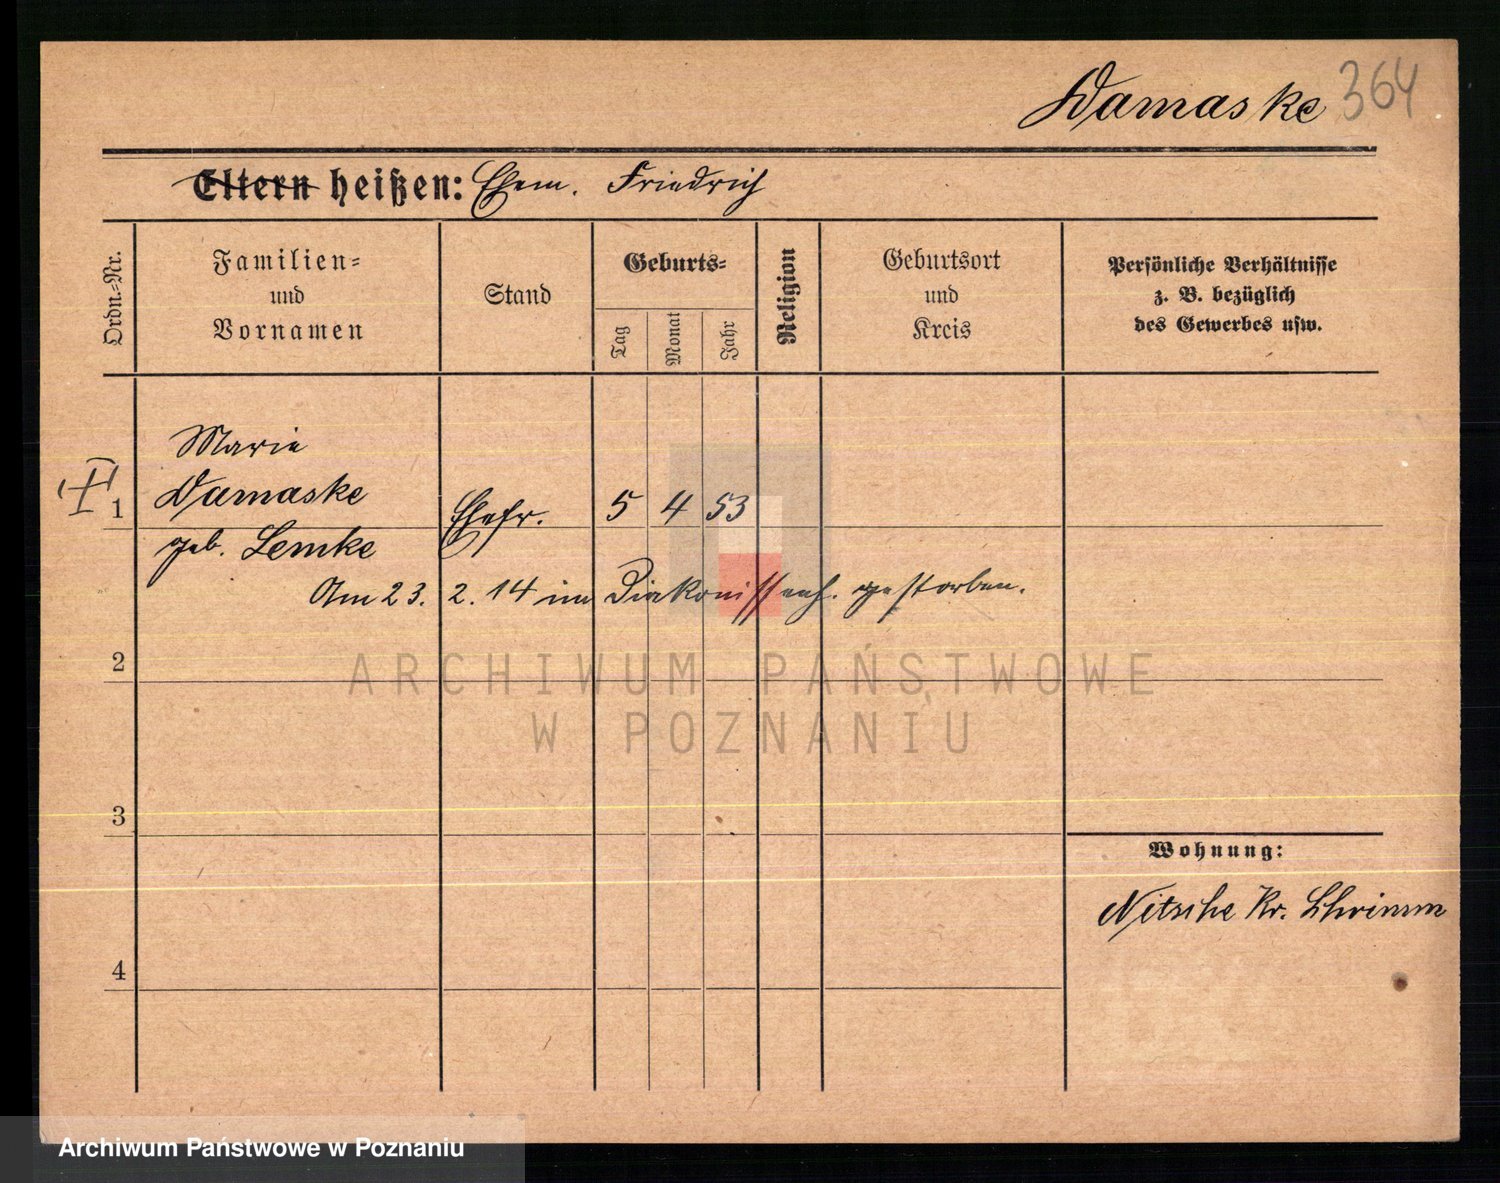 Damaske 364
Eltern heißen: Ehem. Friedrich
Ordn.=Nr.
Familien=
und
Vornamen
Stand
Geburts=
Tag
Monat
Jahr
Religion
Geburtsort
und
Kreis
Persönliche Verhältnisse
z. B. bezüglich
des Gewerbes usw.
Marie
1 Damaske Ehefr. 5 4 53
geb. Lemke
Am 23. 2. 14 im Diakonissenh. gestorben.
2
ARCHIWUM PAŃSTWOWE
W POZNANIU
3
Wohnung:
Nitsche Kr. Schrimm
4
Archiwum Państwowe w Poznaniu